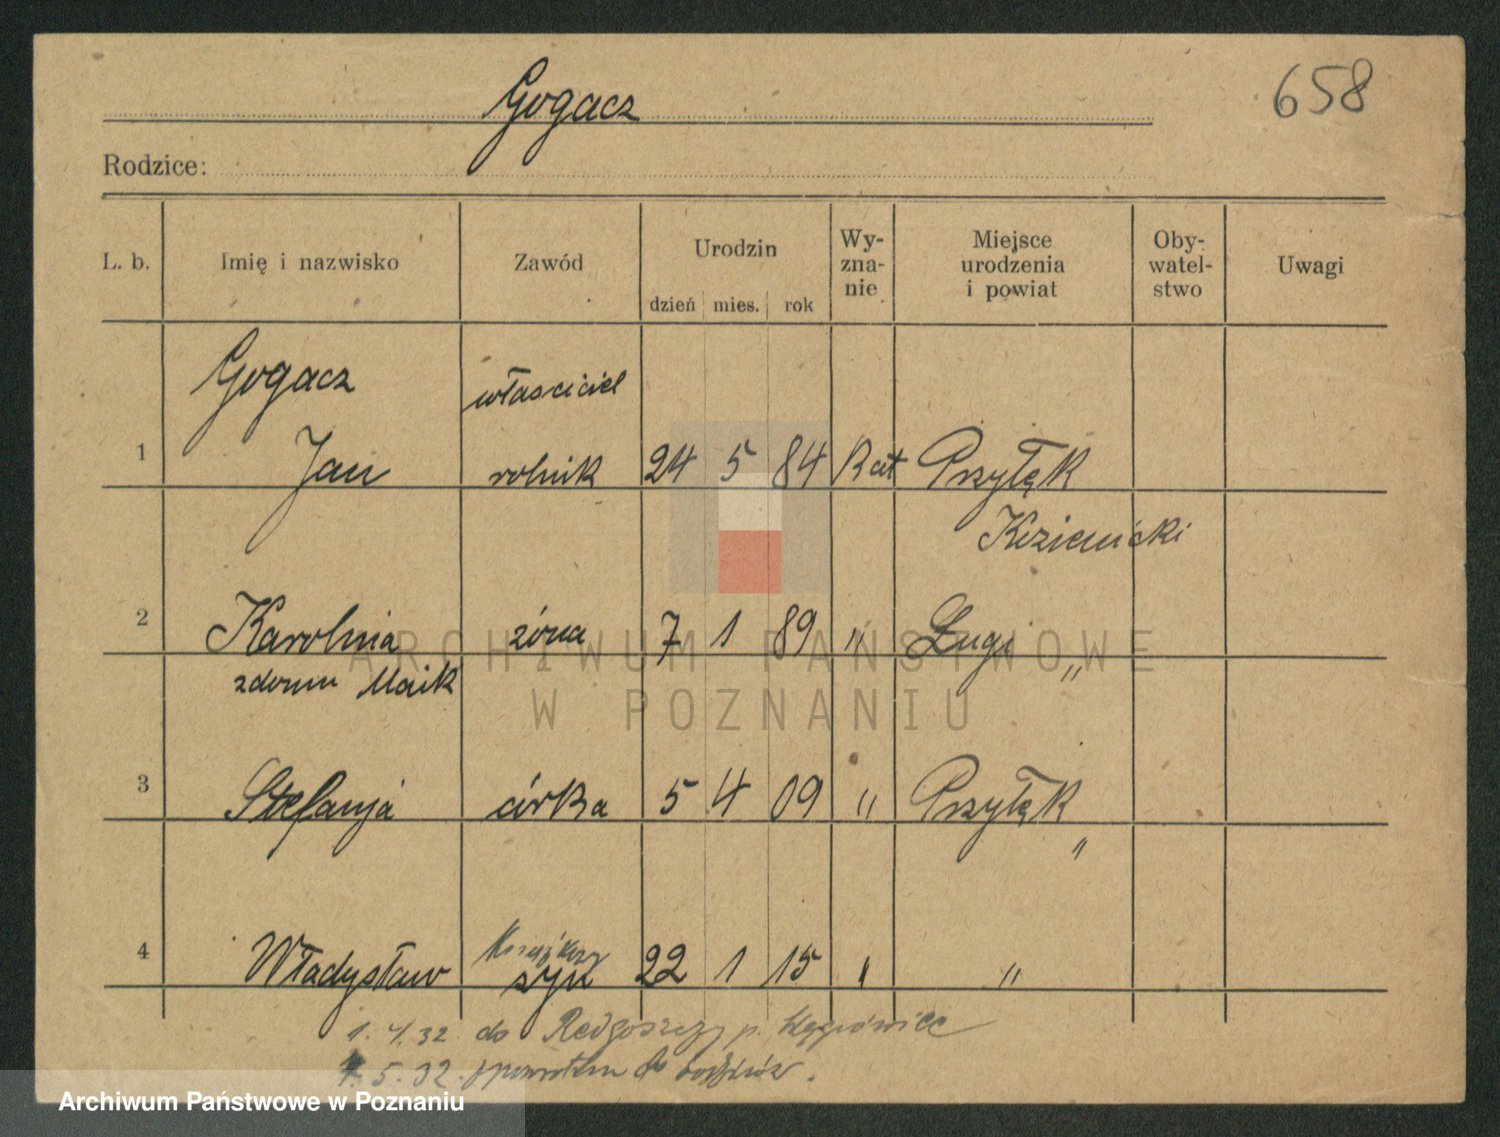 Gogacz 658
Rodzice:
L. b. Imię i nazwisko Zawód Urodzin dzień mies. rok Wy-zna-nie Miejsce urodzenia i powiat Oby-watel-stwo Uwagi
Gogacz właściciel
1 Jan rolnik 24 5 84 Kat Przyłęk
Kozienicki
2 Karolina żona 7 1 89 " Ługi
zdomu Maik "
3 Stefanja córka 5 4 09 " Przyłęk
"
4 Władysław syn 22 1 15 " "
1. 4. 32. do Redgoszczy p. Wągrówiec
5. 32. zpowrotem do
ARCHIWUM PAŃSTWOWE
W POZNANIU
Archiwum Państwowe w Poznaniu